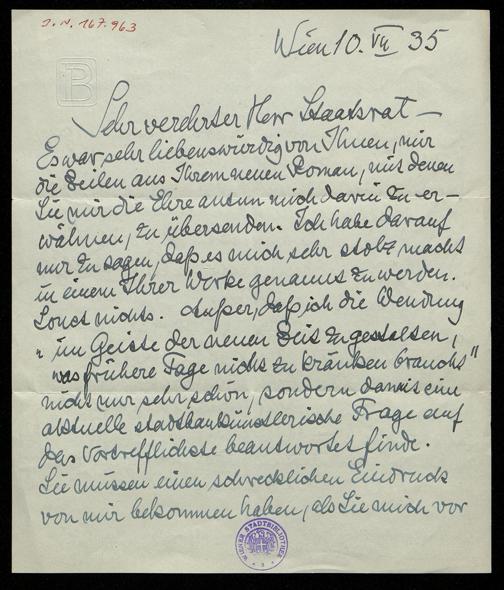 J. N. 167.963
Wien 10. VII 35
B
Sehr verehrter Herr Staatsrat —
Es war sehr liebenswürdig von Ihnen, mir
die Zeilen aus Ihrem neuen Roman, mit denen
Sie mir die Ehre antun mich darin zu er-
wähnen, zu übersenden. Ich habe darauf
nur zu sagen, daß es mich sehr stolz macht
in einem Ihrer Werke genannt zu werden.
Sonst nichts. Außer, daß ich die Wendung
"im Geiste der neuen Zeit zu gestalten,
was frühere Tage nicht zu kränken braucht"
nicht nur sehr schön, sondern damit eine
aktuelle stadtbaukünstlerische Frage auf
das Vortrefflichste beantwortet finde.
Sie müssen einen schrecklichen Eindruck
von mir bekommen haben, als Sie mich vor
WIENER STADTBIBLIOTHEK